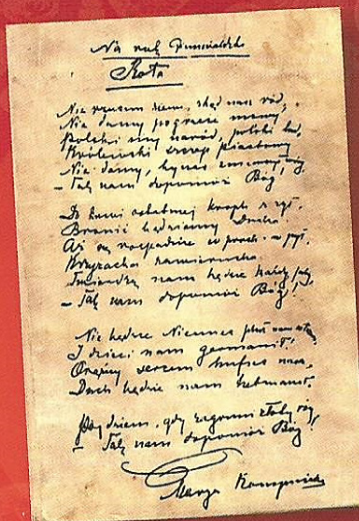 Na nutę
Rota
Nie rzucim ziemi, skąd nasz ród,
Nie damy pogrześć mowy,
Polski my naród, polski lud,
Królewski szczep piastowy
Nie damy, by nas zniemczył wróg,
– Tak nam dopomóż Bóg!
Do krwi ostatniej kropli z żył,
Bronić będziemy Ducha
Aż się rozpadnie w proch i w pył,
Krzyżacka zawierucha.
Twierdzą nam będzie każdy próg
– Tak nam dopomóż Bóg!
Nie będzie Niemiec pluł nam w twarz
I dzieci nam germanił!
Orężny hufiec nasz,
Duch będzie nam hetmanił.
Pójdziem, gdy zagrzmi złoty róg,
– Tak nam dopomóż Bóg!
Marya Konopnicka